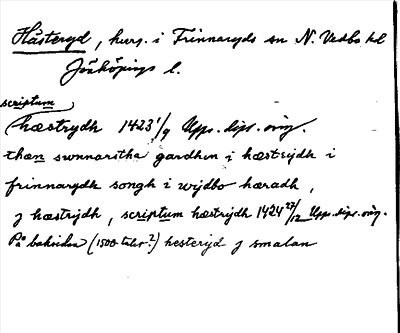 Hästeryd, hus. i Frinnaryds sn N. Vedbo hd
Jönköpings l.
scriptum
hæstrydh 1423 1/9 Upps. dipl. orig.
than swnnarstha gardhen i hæstrydh i
frinnarydh songh i wijdbo hæradh,
j hæstrijdh, scriptum hæstrijdh 1424 27/12 Upp. dipl. orig.
På baksidan (1500-talet?) hesterijd j smalan